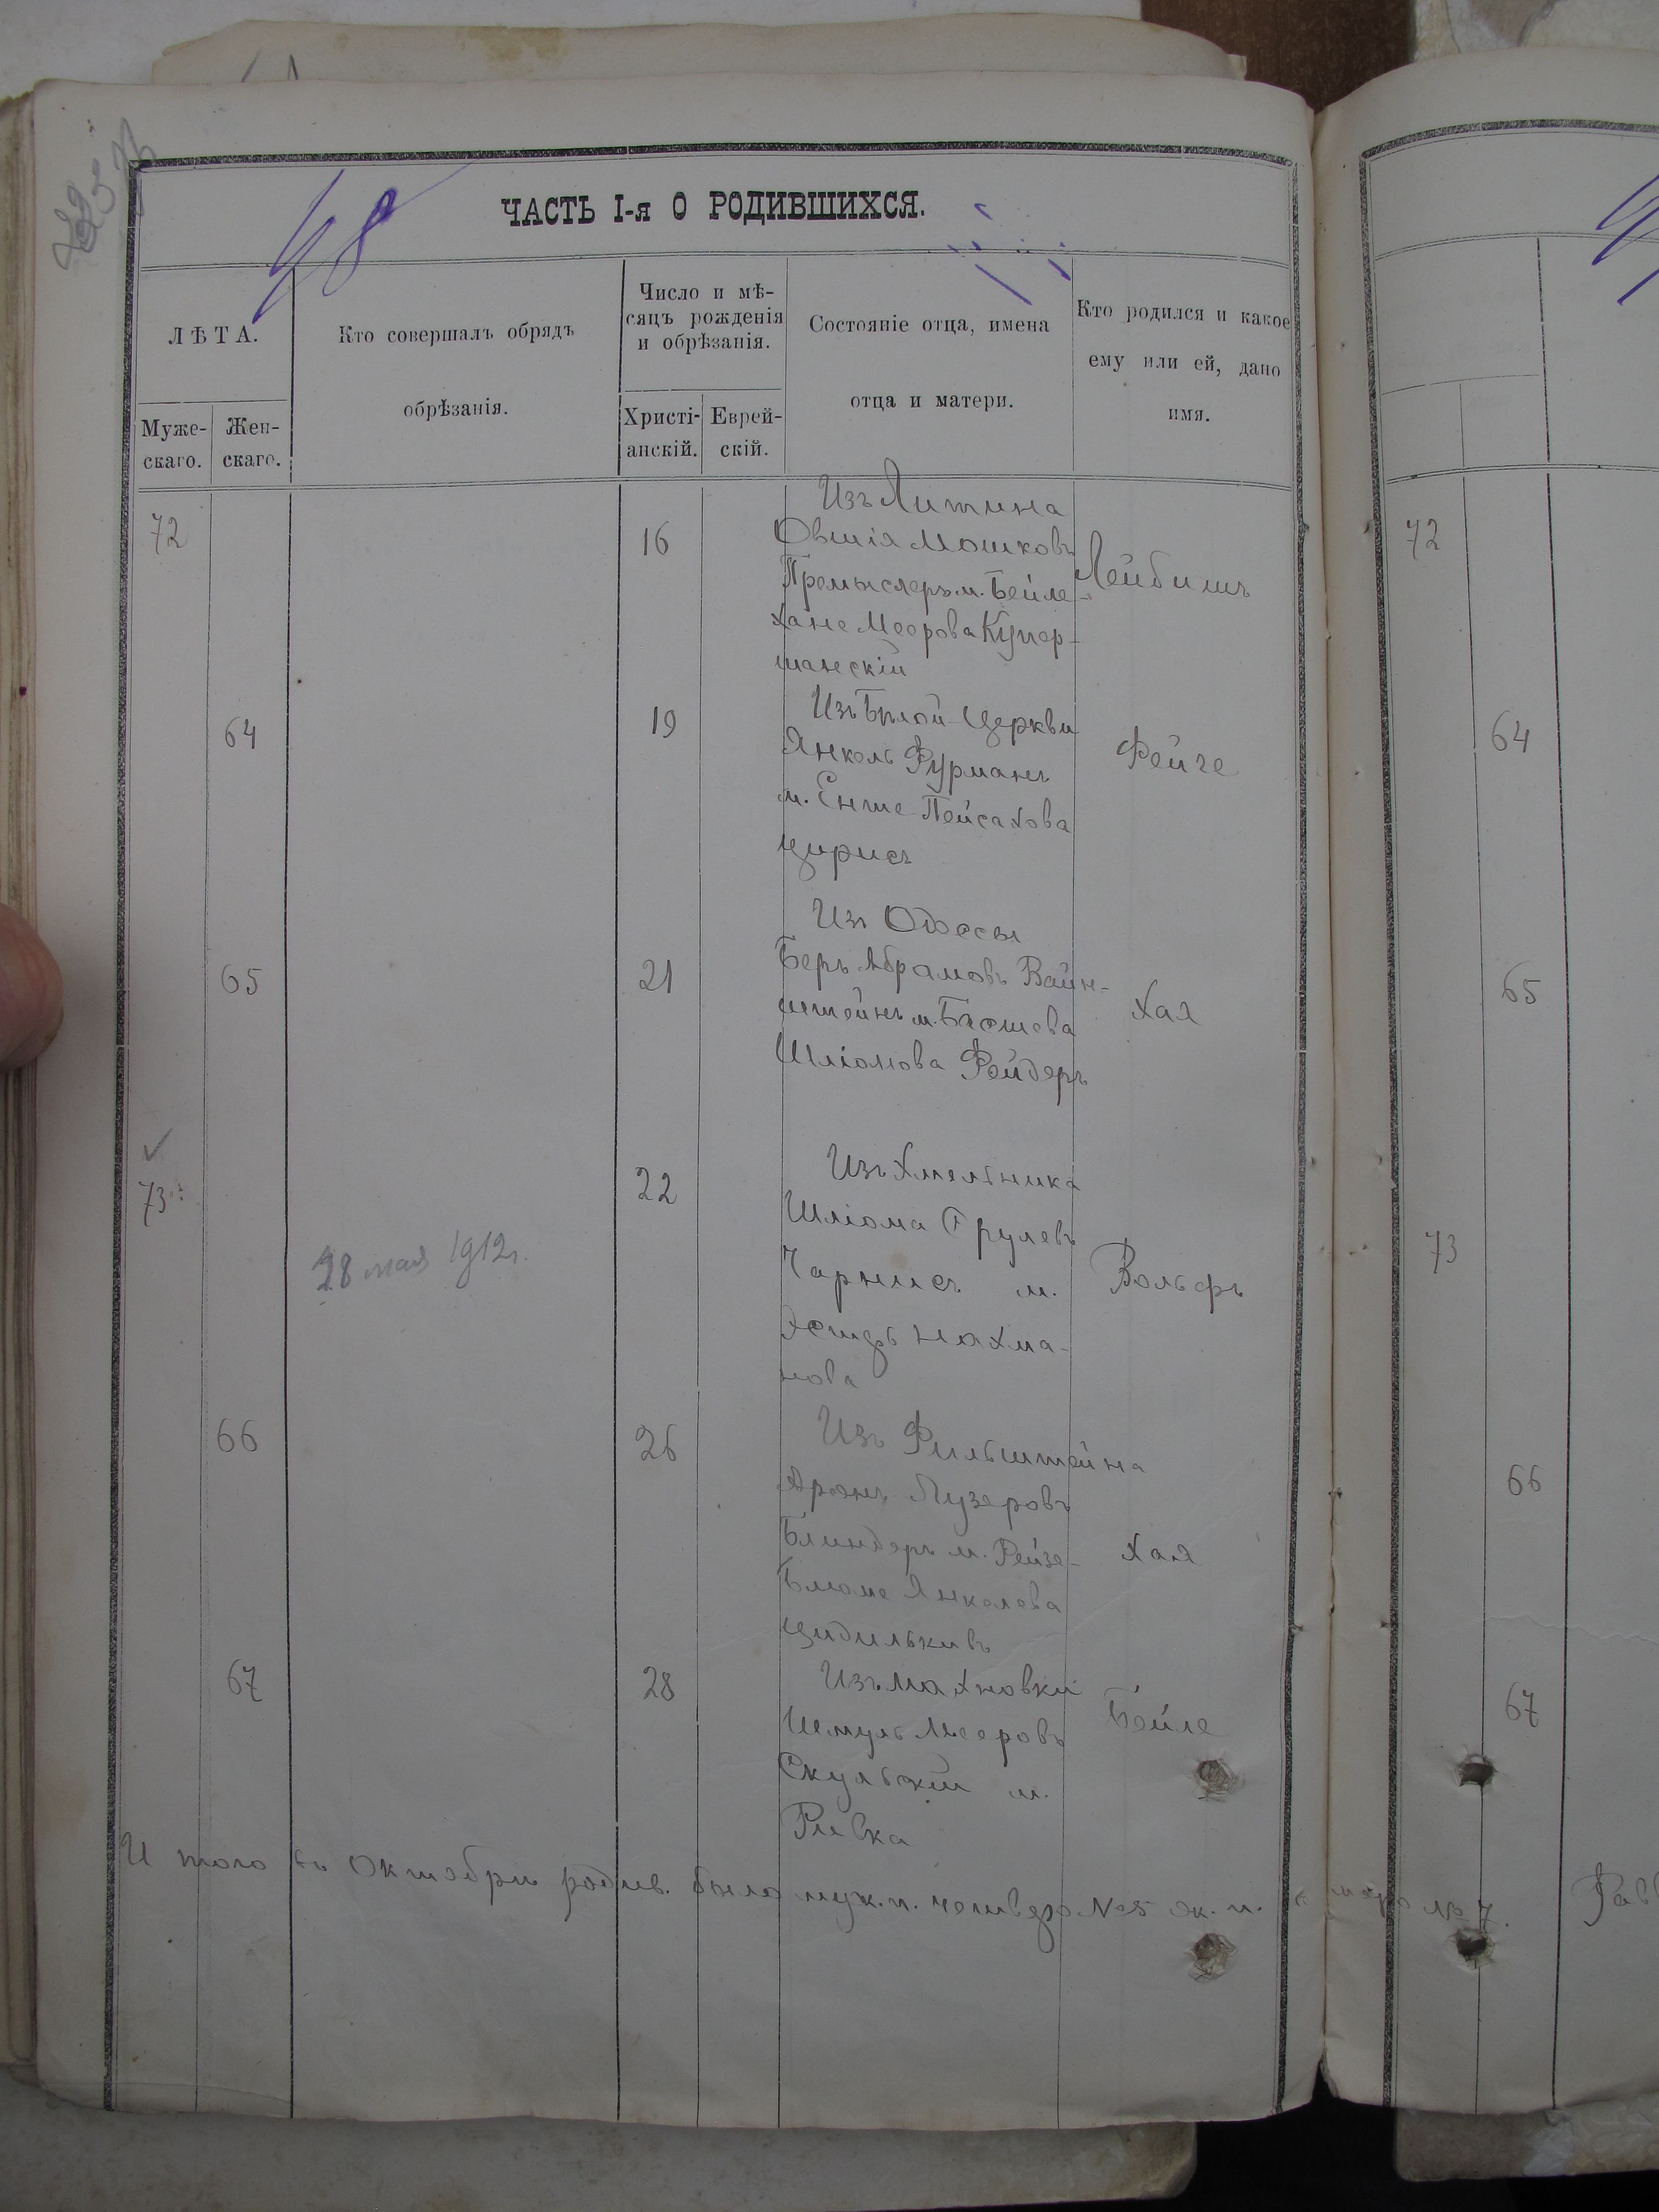 48
ЧАСТЬ I-я О РОДИВШИХСЯ.
ЛѢТА.
Муже-
скаго.
Жен-
скаго.
Кто совершалъ обрядъ
обрѣзанія.
Число и мѣ-
сяцъ рожденія
и обрѣзанія.
Христі-
анскій.
Еврей-
скій.
Состояніе отца, имена
отца и матери.
Кто родился и какое
ему или ей, дано
имя.
72
16
Изъ Литина
Овшія Мошковъ
Премыслеръ м. Бейле-
Хане Меерова Купер-
шанскій
Лейбишъ
72
64
19
Изъ Бѣлой-Церкви
Янкель Фурманъ
м. Енте Пейсахова
Цирисъ
Фейге
64
65
21
Изъ Одессы
Беръ Абрамовъ Вайн-
штейнъ м. Басшева
Шліомова Фейдеръ
Хая
65
73
28 мая 1912 г.
22
Изъ Хмельника
Шліома Срулевъ
Чарнисъ м.
Эстеръ Нахма-
нова
Вольфъ
73
66
26
Изъ Фильштейна
Аронъ Лузеровъ
Блиндеръ м. Рейзе-
Блюме Янкелева
Цидилькивъ
Хая
66
67
28
Изъ Махновки
Шмуль Мееровъ
Скульскій м.
Ривка
Бейле
67
И того въ Октябри родив. было муж. п. четверо №5 ж. п. №7.